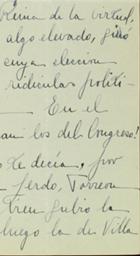 Reina de la virtud,
algo elevado, guió
cuya elección
ridículas políti-
— En el
los del Congreso!
decían, por
Torreón
tren subió la
luego la de Villa